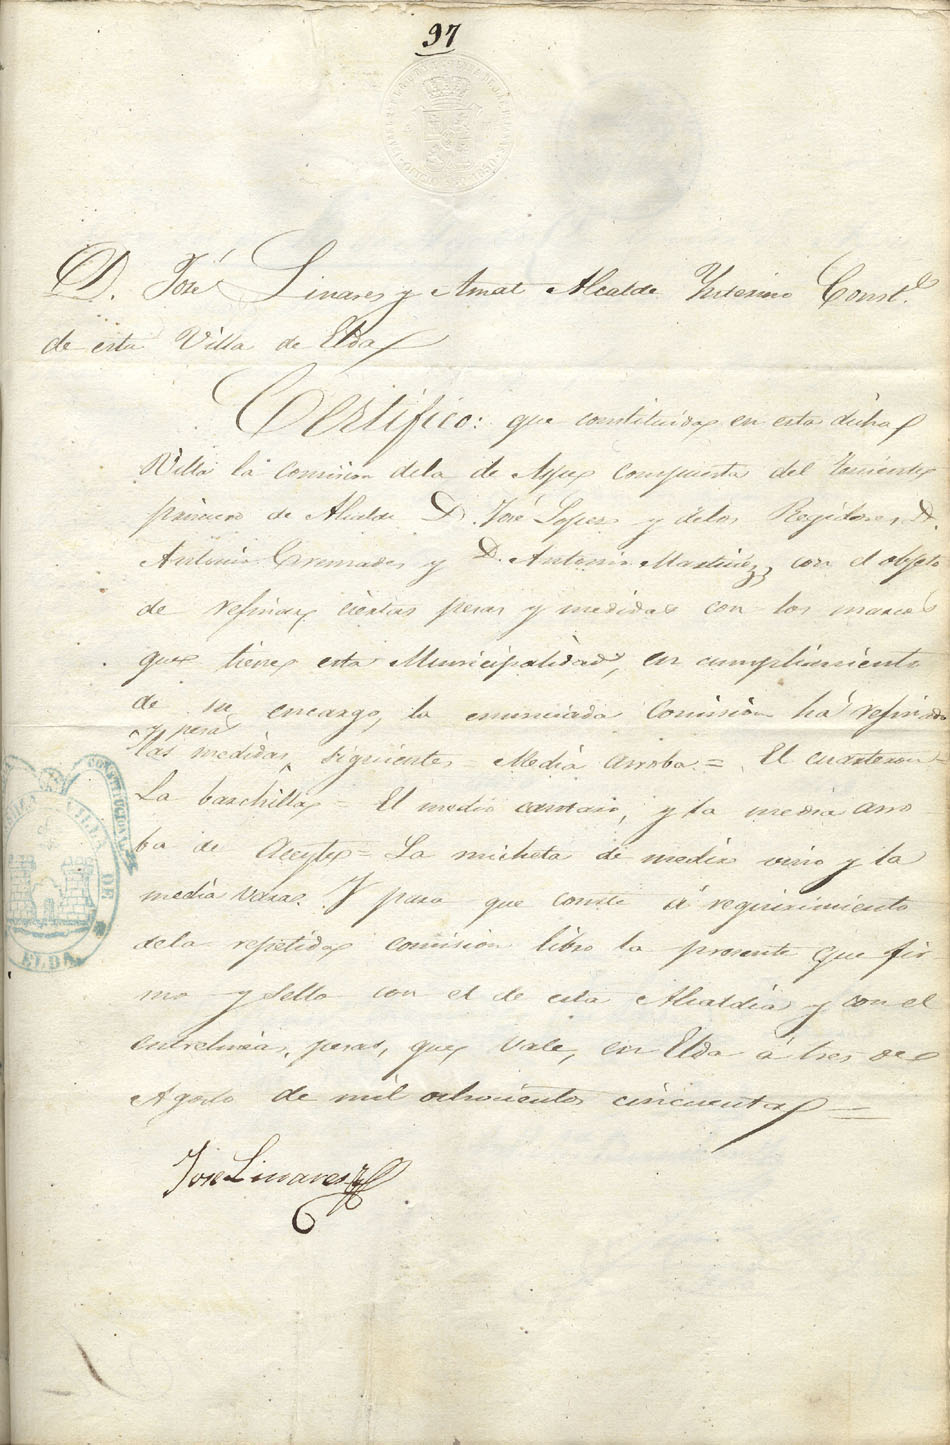 97
D. José Linares y Amat Alcalde Interino Const.l
de esta Villa de Elda
Certifico: que constituida en esta dicha
Villa la Comision dela de Aspe compuesta del teniente
primero de Alcalde D. José Lopez y delos Regidores D.
Antonio Cremades y D. Antonio Martinez, con el objeto
de refinar ciertas pesas y medidas con los marcos
que tiene esta Municipalidad, en cumplimiento
de su encargo, la enunciada Comision há refinado
y pesas
las medidas, siguientes = Media arroba = El cuarteron =
La barchilla = El medio cantaro, y la media arro
ba de Aceyte = La micheta de medir vino y la
media vara. Y para que conste á requirimiento
dela repetida comision libro la presente que fir
mo y sello con el de esta Alcaldia y con el
entrelinea, pesas, que vale, en Elda á tres de
Agosto de mil ochocientos cincuenta =
Jose Linares
CONSTITUCIONAL
VILLA DE
ELDA